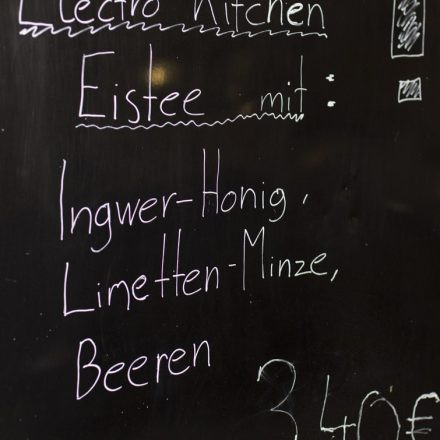 Electro Kitchen
Eistee mit:
Ingwer-Honig,
Limetten-Minze,
Beeren
3,40€